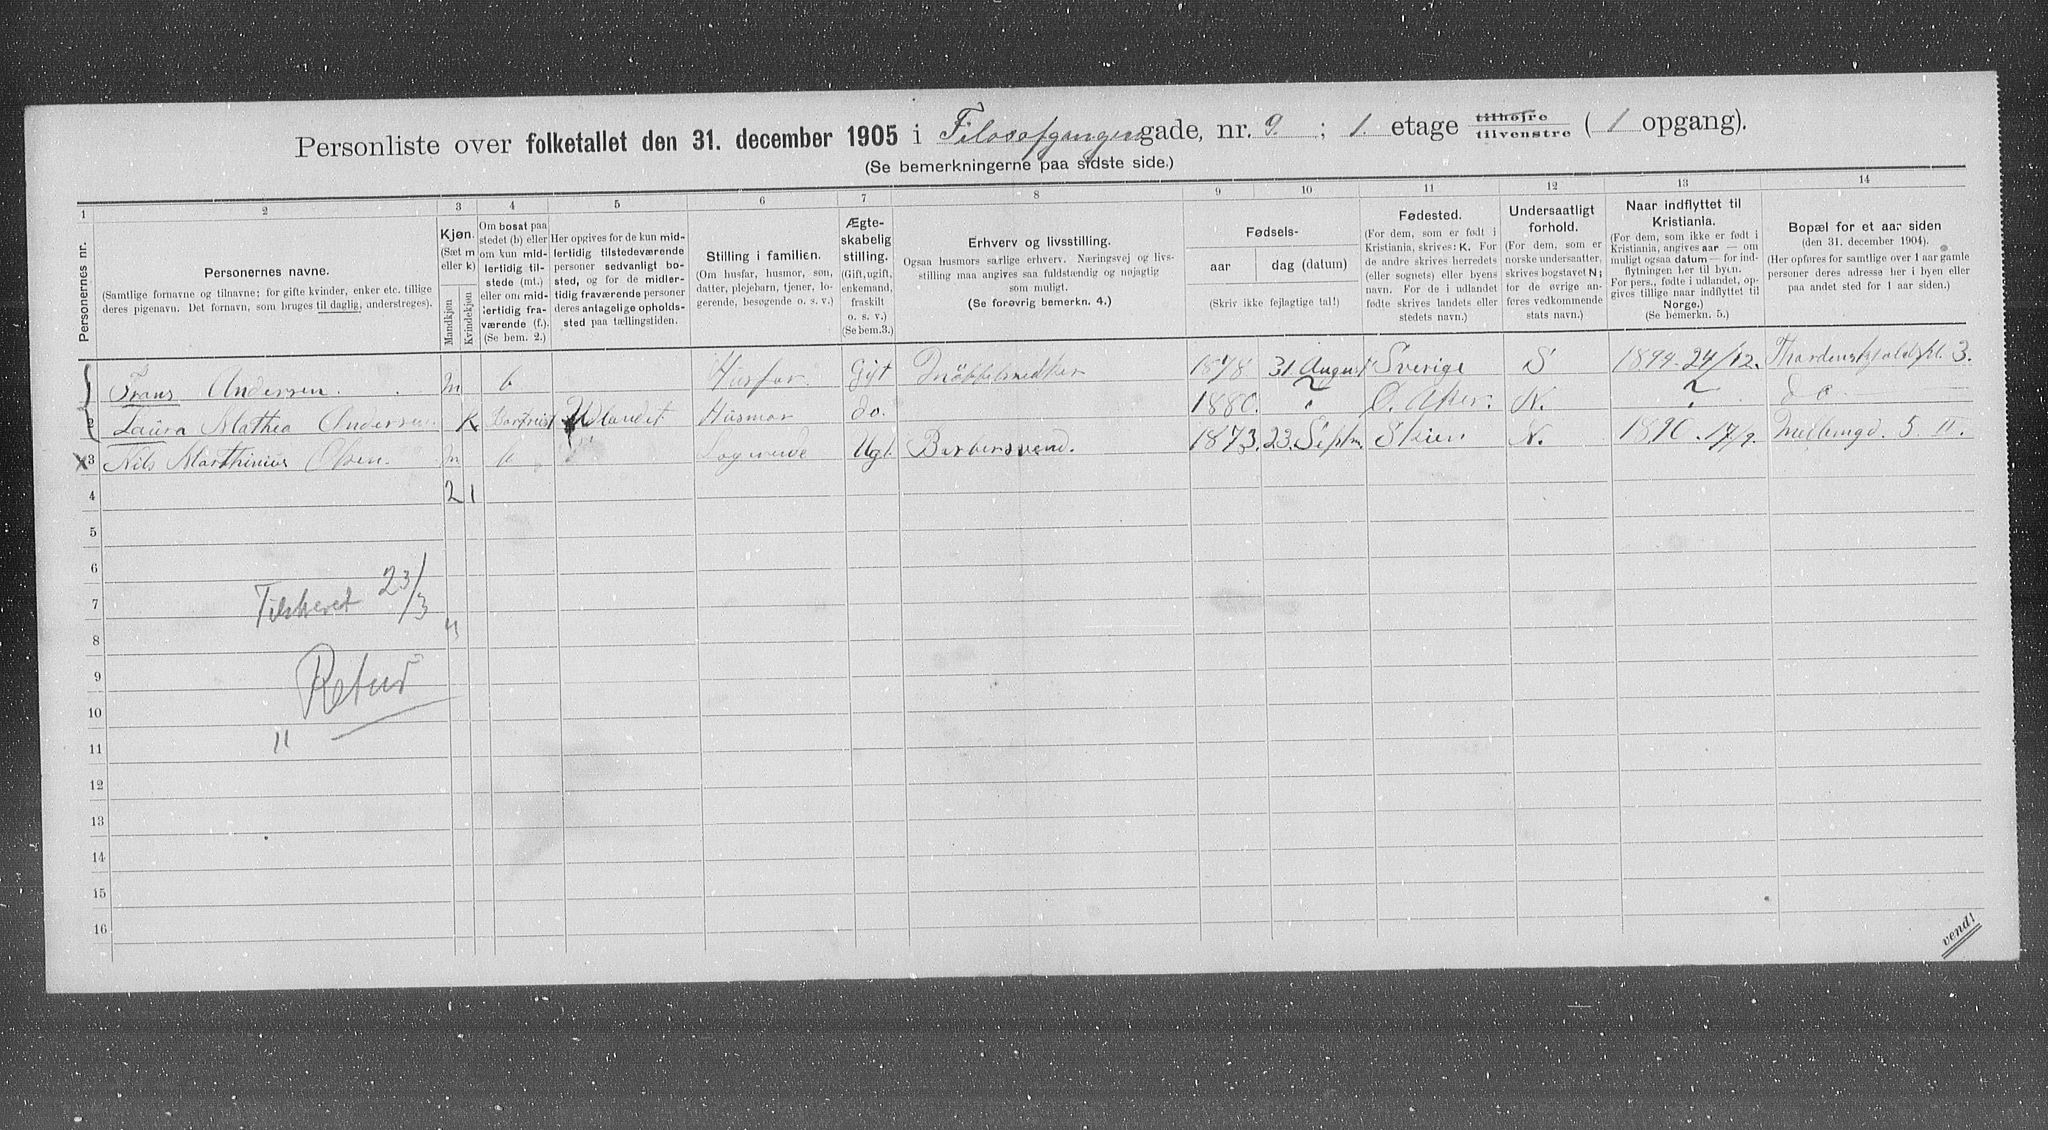 Personliste over folketallet den 31. december 1905 i Filosofgangen gade, nr. 9. ; 1. etage tilhøjre tilvenstre ( 1 opgang).
(Se bemerkningerne paa sidste side.)
1 2 3 4 5 6 7 8 9 10 11 12 13 14
Personernes nr.
Personernes navne.
(Samtlige fornavne og tilnavne; for gifte kvinder, enker etc. tillige
deres pigenavn. Det fornavn, som bruges til daglig, understreges).
Kjøn.
(Sæt m
eller k)
Mandkjøn
Kvindekjøn
Om bosat paa
stedet (b) eller
om kun mid-
lertidig til-
stede (mt.)
eller om mid-
lertidig fra-
værende (f.).
(Se bem. 2.)
Her opgives for de kun mid-
lertidig tilstedeværende
personer sedvanligt bo-
sted, og for de midler-
tidig fraværende personer
deres antagelige opholds-
sted paa tællingstiden.
Stilling i familien.
(Om husfar, husmor, søn,
datter, plejebarn, tjener, lo-
gerende, besøgende o. s. v.)
Ægte-
skabelig
stilling.
(Gift, ugift,
enkemand,
fraskilt
o. s. v.)
(Se bem. 3.)
Erhverv og livsstilling.
Ogsaa husmors særlige erhverv. Næringsvej og livs-
stilling maa angives saa fuldstændig og nøjagtig
som muligt.
(Se forøvrig bemerkn. 4.)
Fødsels-
aar
dag (datum)
(Skriv ikke fejlagtige tal!)
Fødested.
(For dem, som er født i
Kristiania, skrives: K. For
de andre skrives herredets
(eller sognets) eller byens
navn. For de i udlandet
fødte skrives landets eller
stedets navn.)
Undersaatligt
forhold.
(For dem, som er
norske undersaatter,
skrives bogstavet N;
for de øvrige an-
føres vedkommende
stats navn.)
Naar indflyttet til
Kristiania.
(For dem, som ikke er født i
Kristiania, angives aar — om
muligt ogsaa datum — for ind-
flytningen her til byen.
For pers., fødte i udlandet, op-
gives tillige naar indflyttet til
Norge.)
(Se bemerkn. 5.)
Bopæl for et aar siden
(den 31. december 1904).
(Her opføres for samtlige over 1 aar gamle
personer deres adresse her i byen eller
paa andet sted for 1 aar siden.)
Frans Andersen. m b Husfar. Gift Møbbelsnedker 1878 31 August Sverige S 1894 24/12. Thordenskjoldspl. 3.
2 Laura Mathea Andersen. K Bortreist Udlandet Husmor do. 1880. ? Ø. Aker. N. ? do
x3 Nils Marthinius Olsen. m b Logerende Ugt. Barbersvend. 1873. 23. Septm. Steien N. 1890. 17/9. Møllergd. 5 II.
4 2 1
5
6
7
8
9
10
11
12
13
14
15
16
Tilskrevet 23/3
Retur
"
vend!